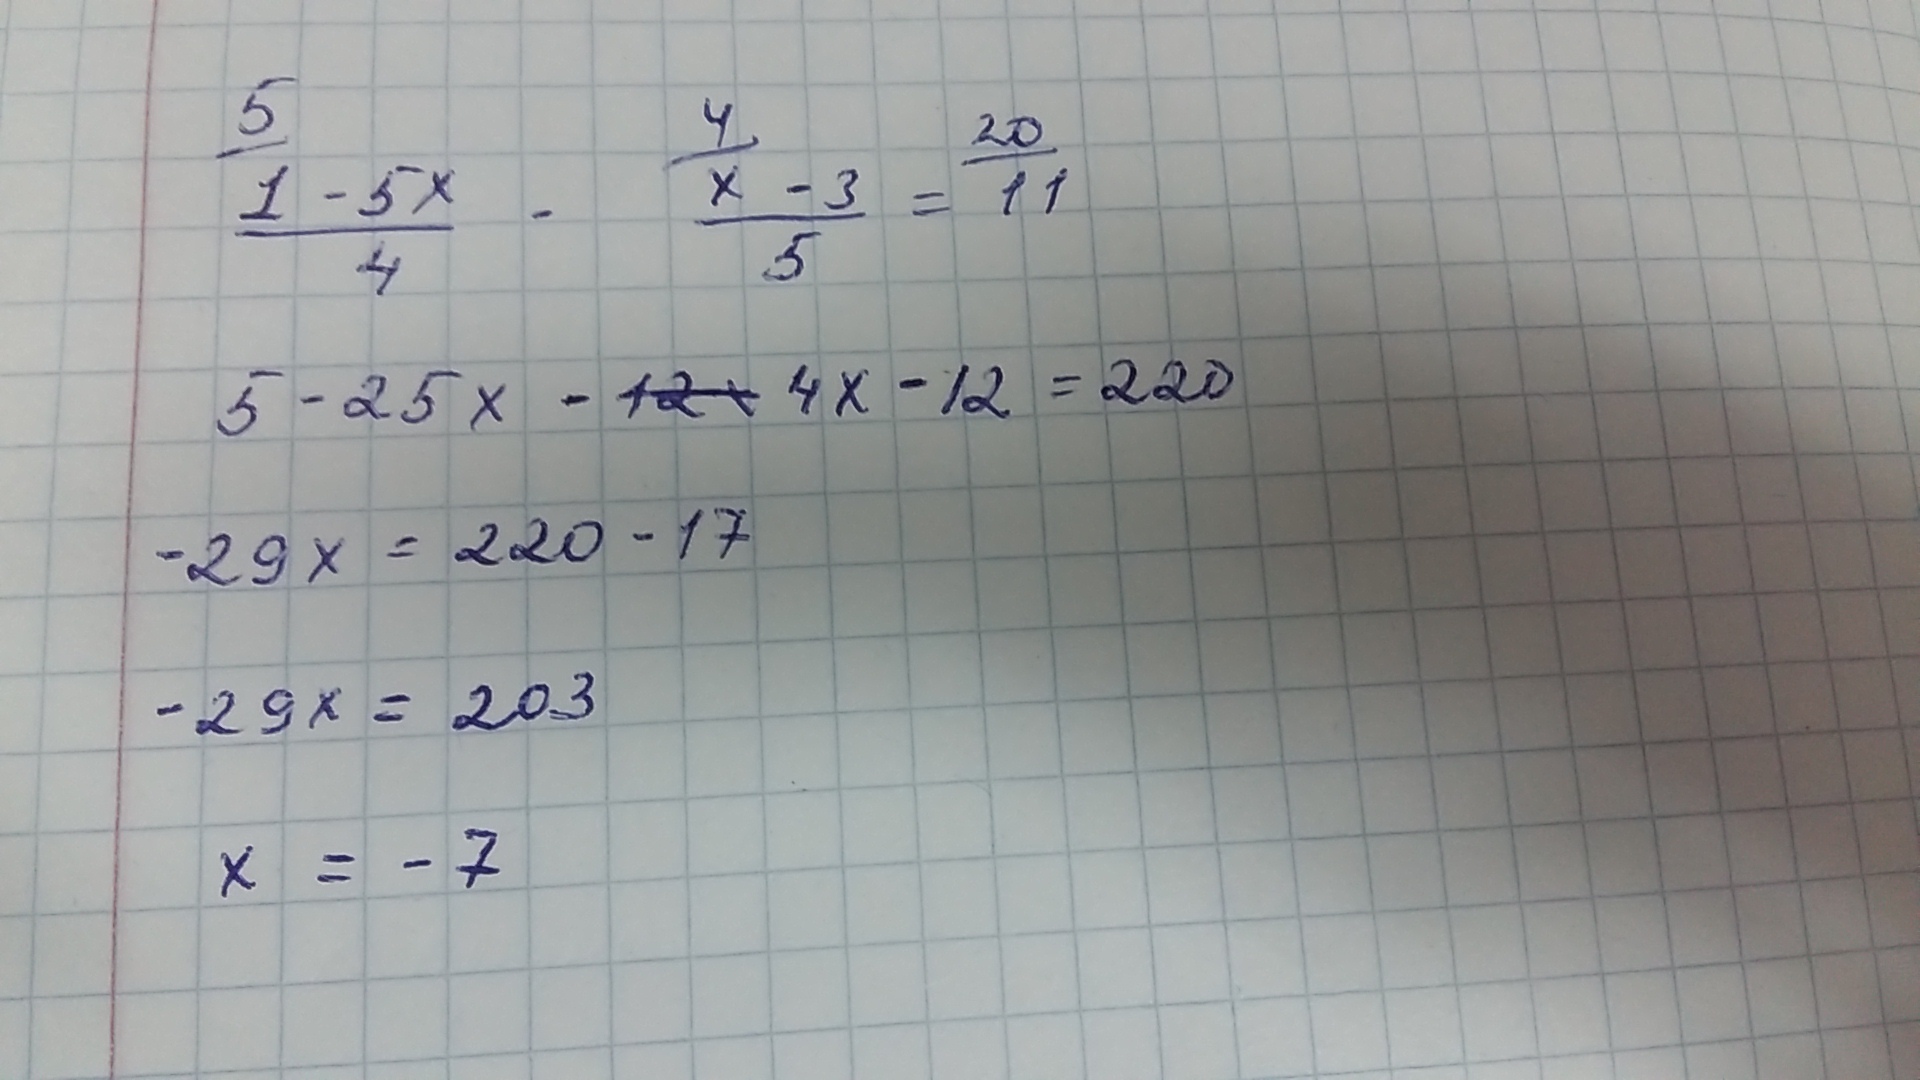 5 4 20
1 - 5x / 4 - x - 3 / 5 = 11
5 - 25x - 12x 4x - 12 = 220
-29x = 220 - 17
-29x = 203
x = -7